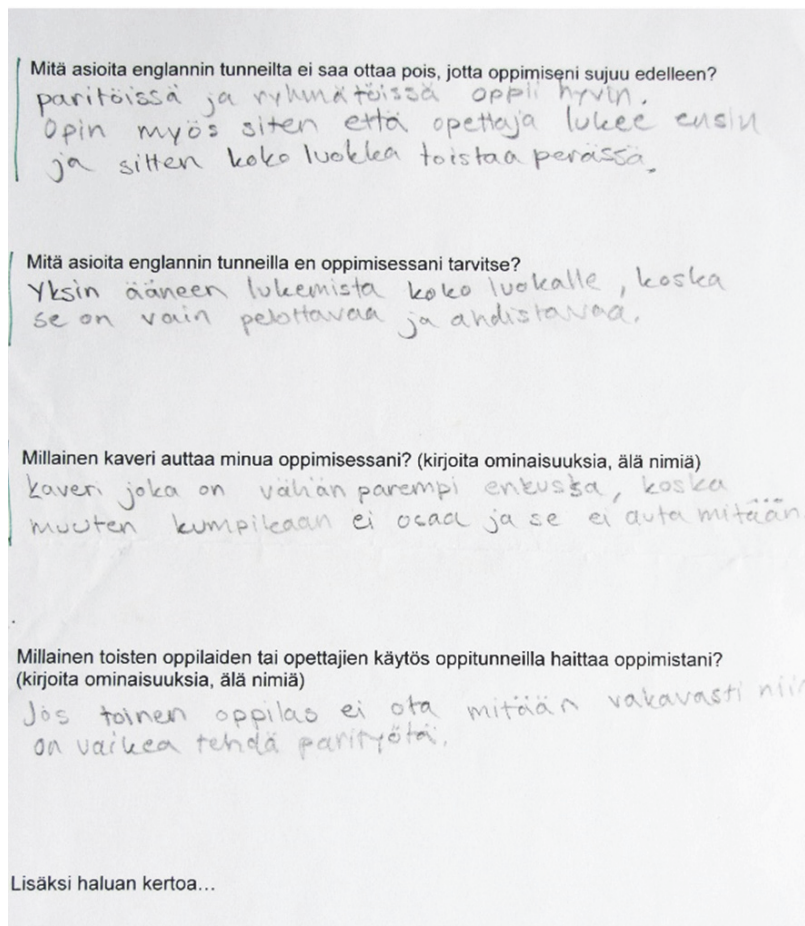 Mitä asioita englannin tunneilta ei saa ottaa pois, jotta oppimiseni sujuu edelleen?
paritöissä ja ryhmätöissä oppii hyvin.
Opin myös siten että opettaja lukee ensin
ja sitten koko luokka toistaa perässä.
Mitä asioita englannin tunneilla en oppimisessani tarvitse?
Yksin ääneen lukemista koko luokalle, koska
se on vain pelottavaa ja ahdistavaa.
Millainen kaveri auttaa minua oppimisessani? (kirjoita ominaisuuksia, älä nimiä)
Kaveri joka on vähän parempi enkussa, koska
muuten kumpikaan ei osaa ja se ei auta mitään
Millainen toisten oppilaiden tai opettajien käytös oppitunneilla haittaa oppimistani?
(kirjoita ominaisuuksia, älä nimiä)
Jos toinen oppilas ei ota mitään vakavasti niin
on vaikea tehdä parityötä.
Lisäksi haluan kertoa...